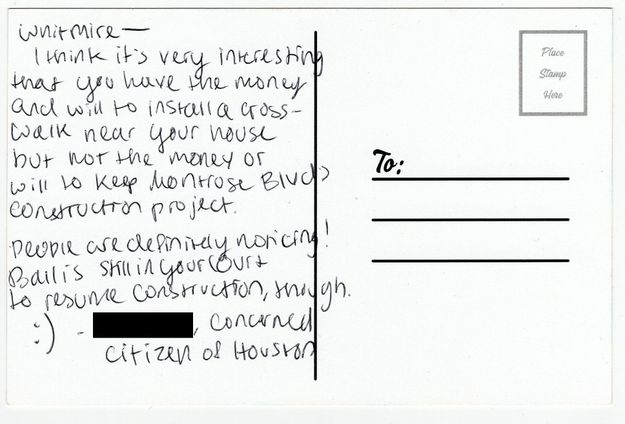 Whitmire—
I think it's very interesting
that you have the money
and will to install a cross-
walk near your house
but not the money or
will to keep Montrose Blvd's
construction project.
People are definitely noticing!
Ball is still in your court
to resume construction, though.
:) - , concerned
citizen of Houston
Place
Stamp
Here
To: